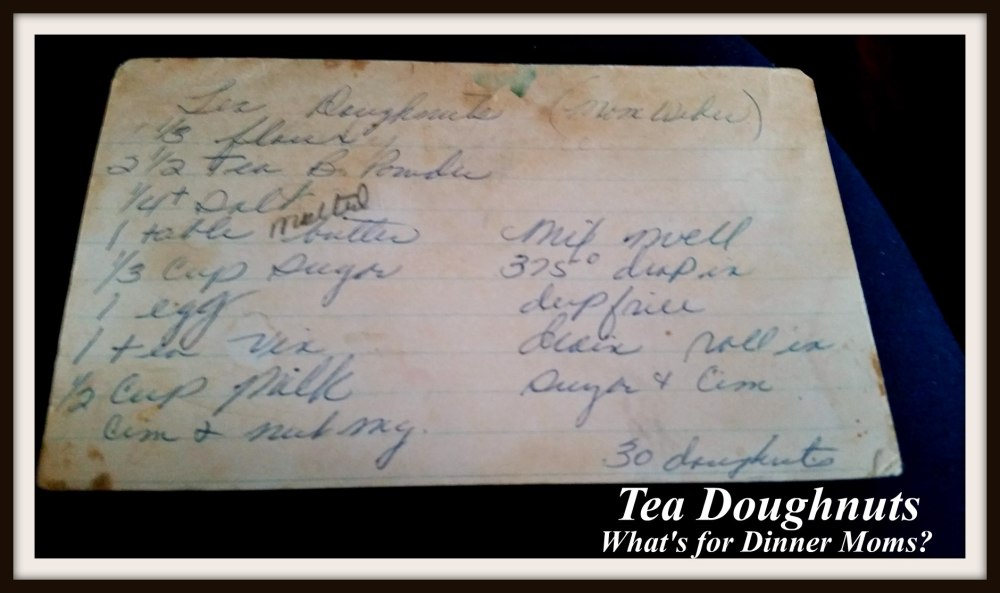 Tea Doughnuts (Mom Weber)
1 1/3 flour
2 1/2 Tea B. Powder
1/4 t Salt
1 table melted butter
1/3 Cup Sugar
1 egg
1 tea Vin
1/2 Cup Milk
Cim & nutmg.
Mix well
375° drop in
deep frier
drain roll in
Sugar & Cim
30 doughnuts
Tea Doughnuts
What's for Dinner Moms?